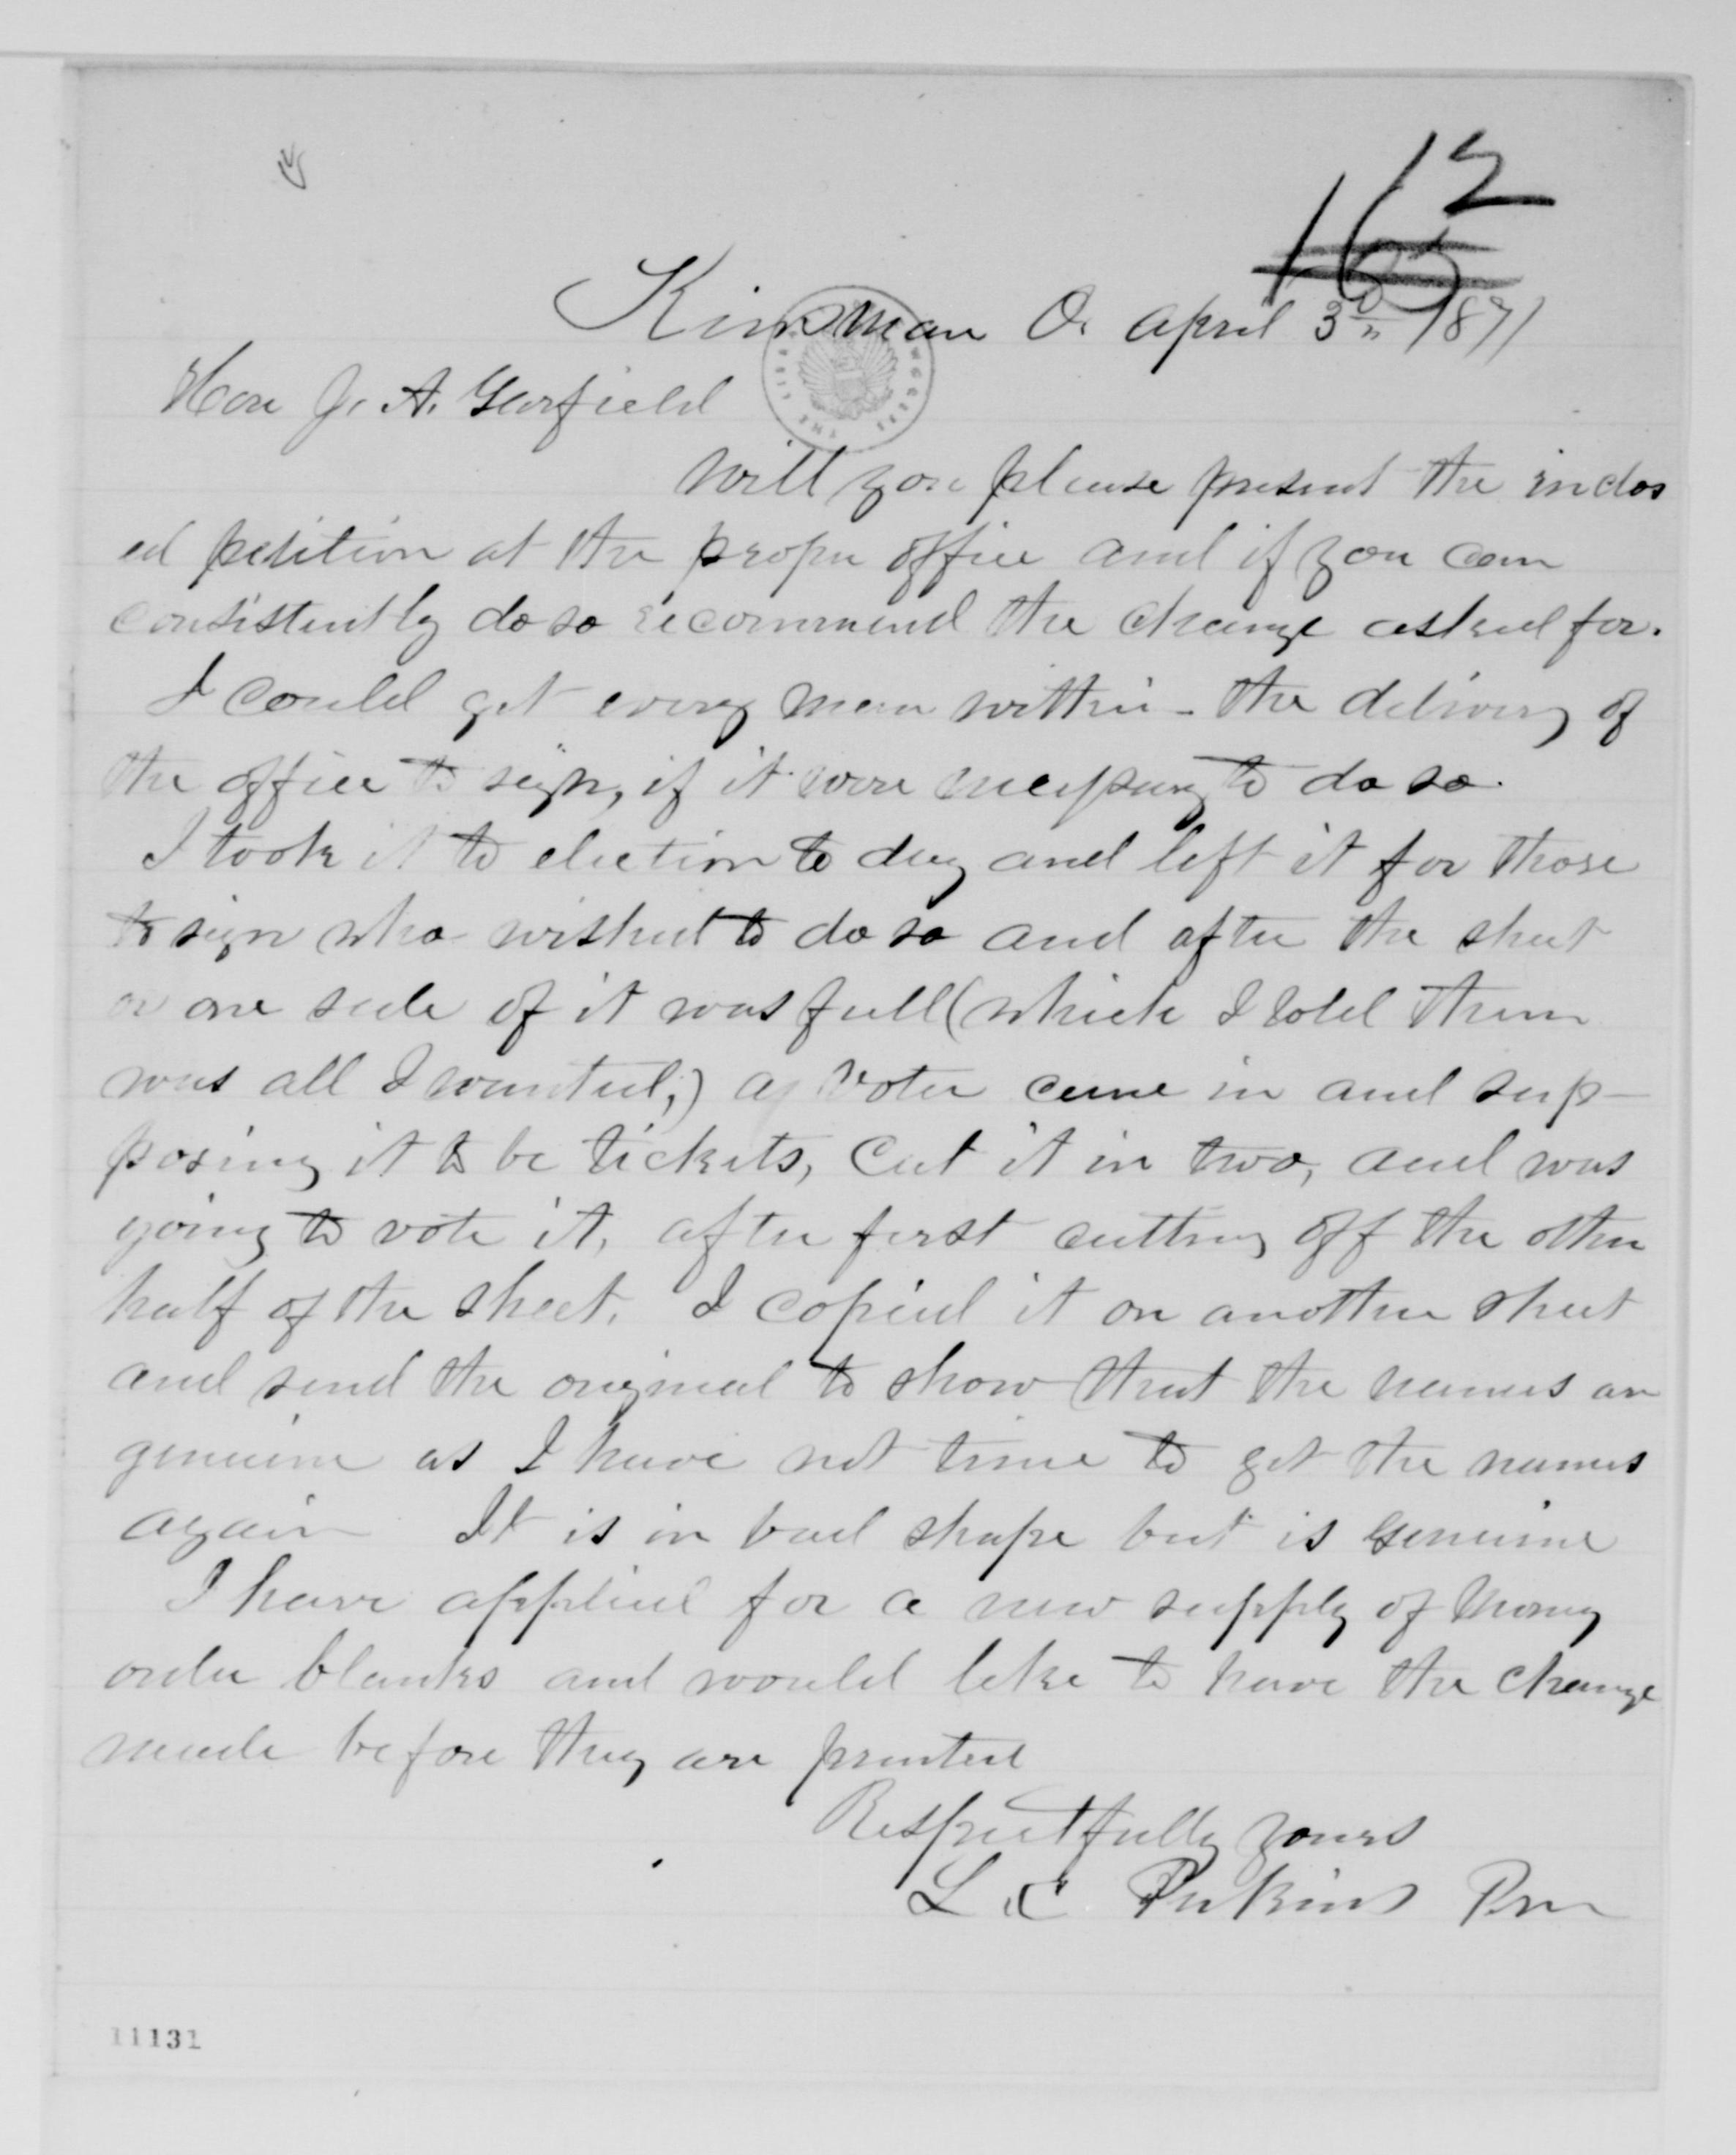 112
Kinsman O. April 3d 1871
Hon J. A. Garfield
Will you please present the inclos
ed petition at the proper office and if you can
consistently do so recommend the change asked for.
I could get every man within the delivery of
the office to sign, if it were necessary to do so.
I took it to election to day and left it for those
to sign who wished to do so and after the sheet
or one side of it was full (which I told them
was all I wanted,) a voter came in and sup-
posing it to be tickets, cut it in two, and was
going to vote it, after first cutting off the other
half of the sheet. I copied it on another sheet
and send the original to show that the names are
genuine as I have not time to get the names
again It is in bad shape but is genuine
I have applied for a new supply of Money
order blanks and would like to have the change
made before they are printed
Respectfully yours
L. C. Perkins Pm
11131